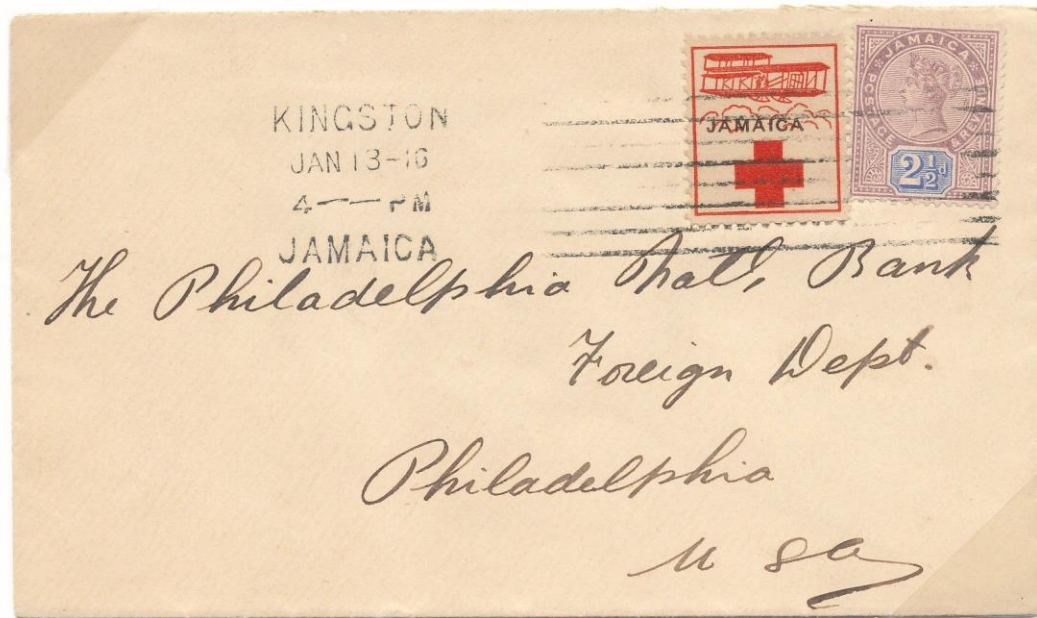 KINGSTON
JAN 13-16
4——PM
JAMAICA
JAMAICA
JAMAICA
POSTAGE & REVENUE
2½d
The Philadelphia Nat'l, Bank
Foreign Dept.
Philadelphia
U S a